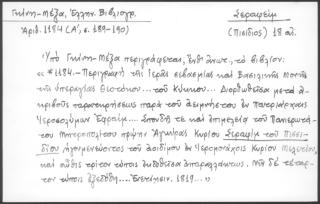 Γκίνη-Μέξα, Ἑλλην. Βιβλιογρ. Σεραφείμ
Ἀριθ. 1184 (Α', σ. 189-190) (Πισίδιος) 18 αἰ.
Ὑπὸ Γκίνη-Μέξα περιγράφεται, ἔνθ' ἀνωτ., τὸ βιβλίον:
«*1184.- Περιγραφὴ τῆς Ἱερᾶς σεβασμίας καὶ Βασιλικῆς Μονῆς
τῆς ὑπεραγίας Θεοτόκου... τοῦ Κύκκου... Διορθωθεῖσα μετὰ ἀ-
κριβοῦς παρατηρήσεως παρὰ τοῦ ἀειμνήστου ἐν Πατριάρχαις
Ἱεροσολύμων Ἐφραίμ... σπουδῇ τε καὶ ἐπιμελείᾳ τοῦ Πανιερωτά-
του Μητροπολίτου πρώην Ἀγκύρας Κυρίου Σεραφεὶμ τοῦ Πισσι-
δίου ἡγουμενεύοντος τοῦ ἀοιδίμου ἐν Ἱερομονάχοις Κυρίου Μελετίου,
καὶ αὖθις τρίτον τύποις ἐκδοθεῖσα ἀπαραλλάκτως. Νῦν δὲ τέταρ-
τον τύποις ἐξεδόθη... Ἐνετίησιν. 1819...»